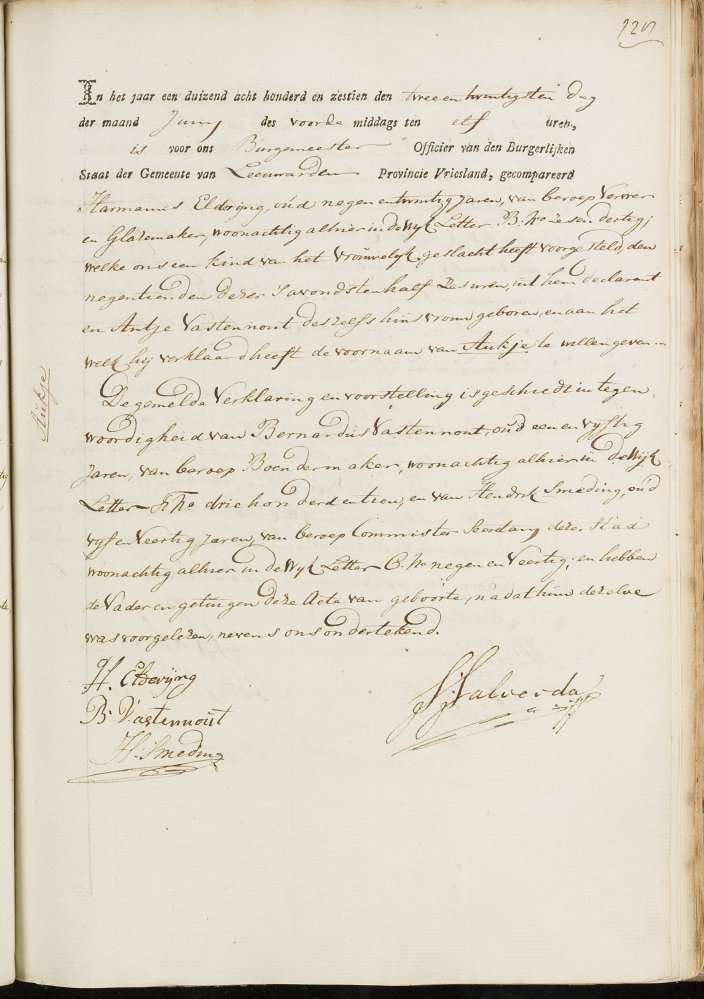 In het jaar een duizend acht honderd en zestien den twee en twintigsten dag
der maand Juny des voorde middags ten elf uren,
is voor ons Burgemeester Officier van den Burgerlijken
Staat der Gemeente van Leeuwarden Provincie Vriesland, gecompareerd
Harmannes Eldrijng, oud negen en twintig Jaren, van beroep Verwer
en Glazemaker, woonachtig alhier in de Wyk Letter B. No zes en dertig;
welke ons een kind van het Vrouwelyk geslacht heeft voorgesteld, den
negentienden dezer 's avonds ten half zes uren, uit hem declarant
en Antje Vastennout deszelfs huisvrouw geboren, en aan het
welk hy verklaard heeft de voornaam van Aukje te willen geven.
Aukje
De gemelde Verklaring en voorstelling is geschiedt in tegen
woordigheid van Bernardus Vastennout, oud een en vyftig
Jaren, van beroep Boendermaker, woonachtig alhier in de Wijk
Letter No drie honderd en tien, en van Hendrik Smeding, oud
vyf en Veertig Jaren, van beroep Commister dezer Stad
woonachtig alhier in de Wyk Letter No negen en Veertig; en hebben
de Vader en getuigen deze Acte van geboorte, na dat hun dezelve
was voorgelezen, nevens ons ondertekend.
H. Eldrijng
B. Vastennout
H. Smeding